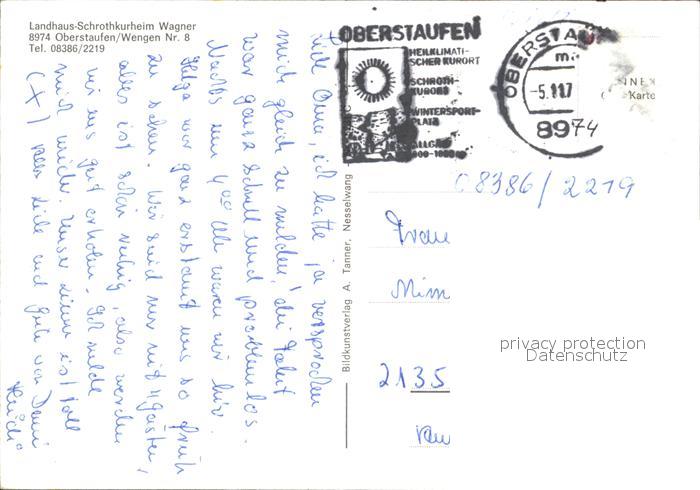 Landhaus-Schrothkurheim Wagner
8974 Oberstaufen/Wengen Nr. 8
Tel. 08386/2219
OBERSTAUFEN
HEILKLIMATI-
SCHER KURORT
SCHROTH-
KURORT
WINTERSPORT-
PLATZ
ALLGÄU
OBERSTAU
-5.11.7
8974
Karte
08386/2219
Frau
2135
privacy protection
Datenschutz
Bildkunstverlag A. Tanner, Nesselwang
Liebe Oma, ich hatte ja versprochen
mich gleich zu melden, die Fahrt
war ganz schnell und problemlos.
Nachts um 4 00 Uhr waren wir hier.
Helga war ganz erstaunt uns so früh
zu sehen. Wir sind nur mit 4 Gästen,
alles ist schön ruhig, also werden
wir uns gut erholen. Ich melde
mich wieder. Unser Zimmer ist toll
(+) viele liebe und Gute von Deine
Heidi